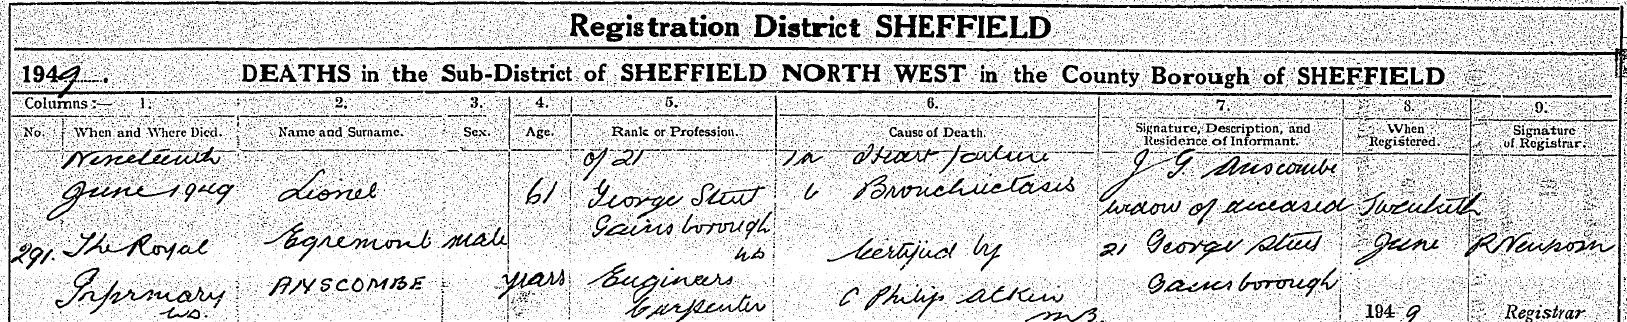 Registration District SHEFFIELD
1949. DEATHS in the Sub-District of SHEFFIELD NORTH WEST in the County Borough of SHEFFIELD
Columns:— 1. 2. 3. 4. 5. 6. 7. 8. 9.
No. When and Where Died. Name and Surname. Sex. Age. Rank or Profession. Cause of Death. Signature, Description, and Residence of Informant. When Registered. Signature of Registrar.
291.
Nineteenth
June 1949
The Royal
Infirmary
U.D.
Lionel
Egremont
ANSCOMBE
male
61
years
of 21
George Street
Gainsborough
U.D.
Engineers
Carpenter
1a Heart failure
b Bronchiectasis
Certified by
C Philip Atkin
M.B.
J G Anscombe
widow of deceased
21 George Street
Gainsborough
Twentieth
June
1949
R Newsom
Registrar